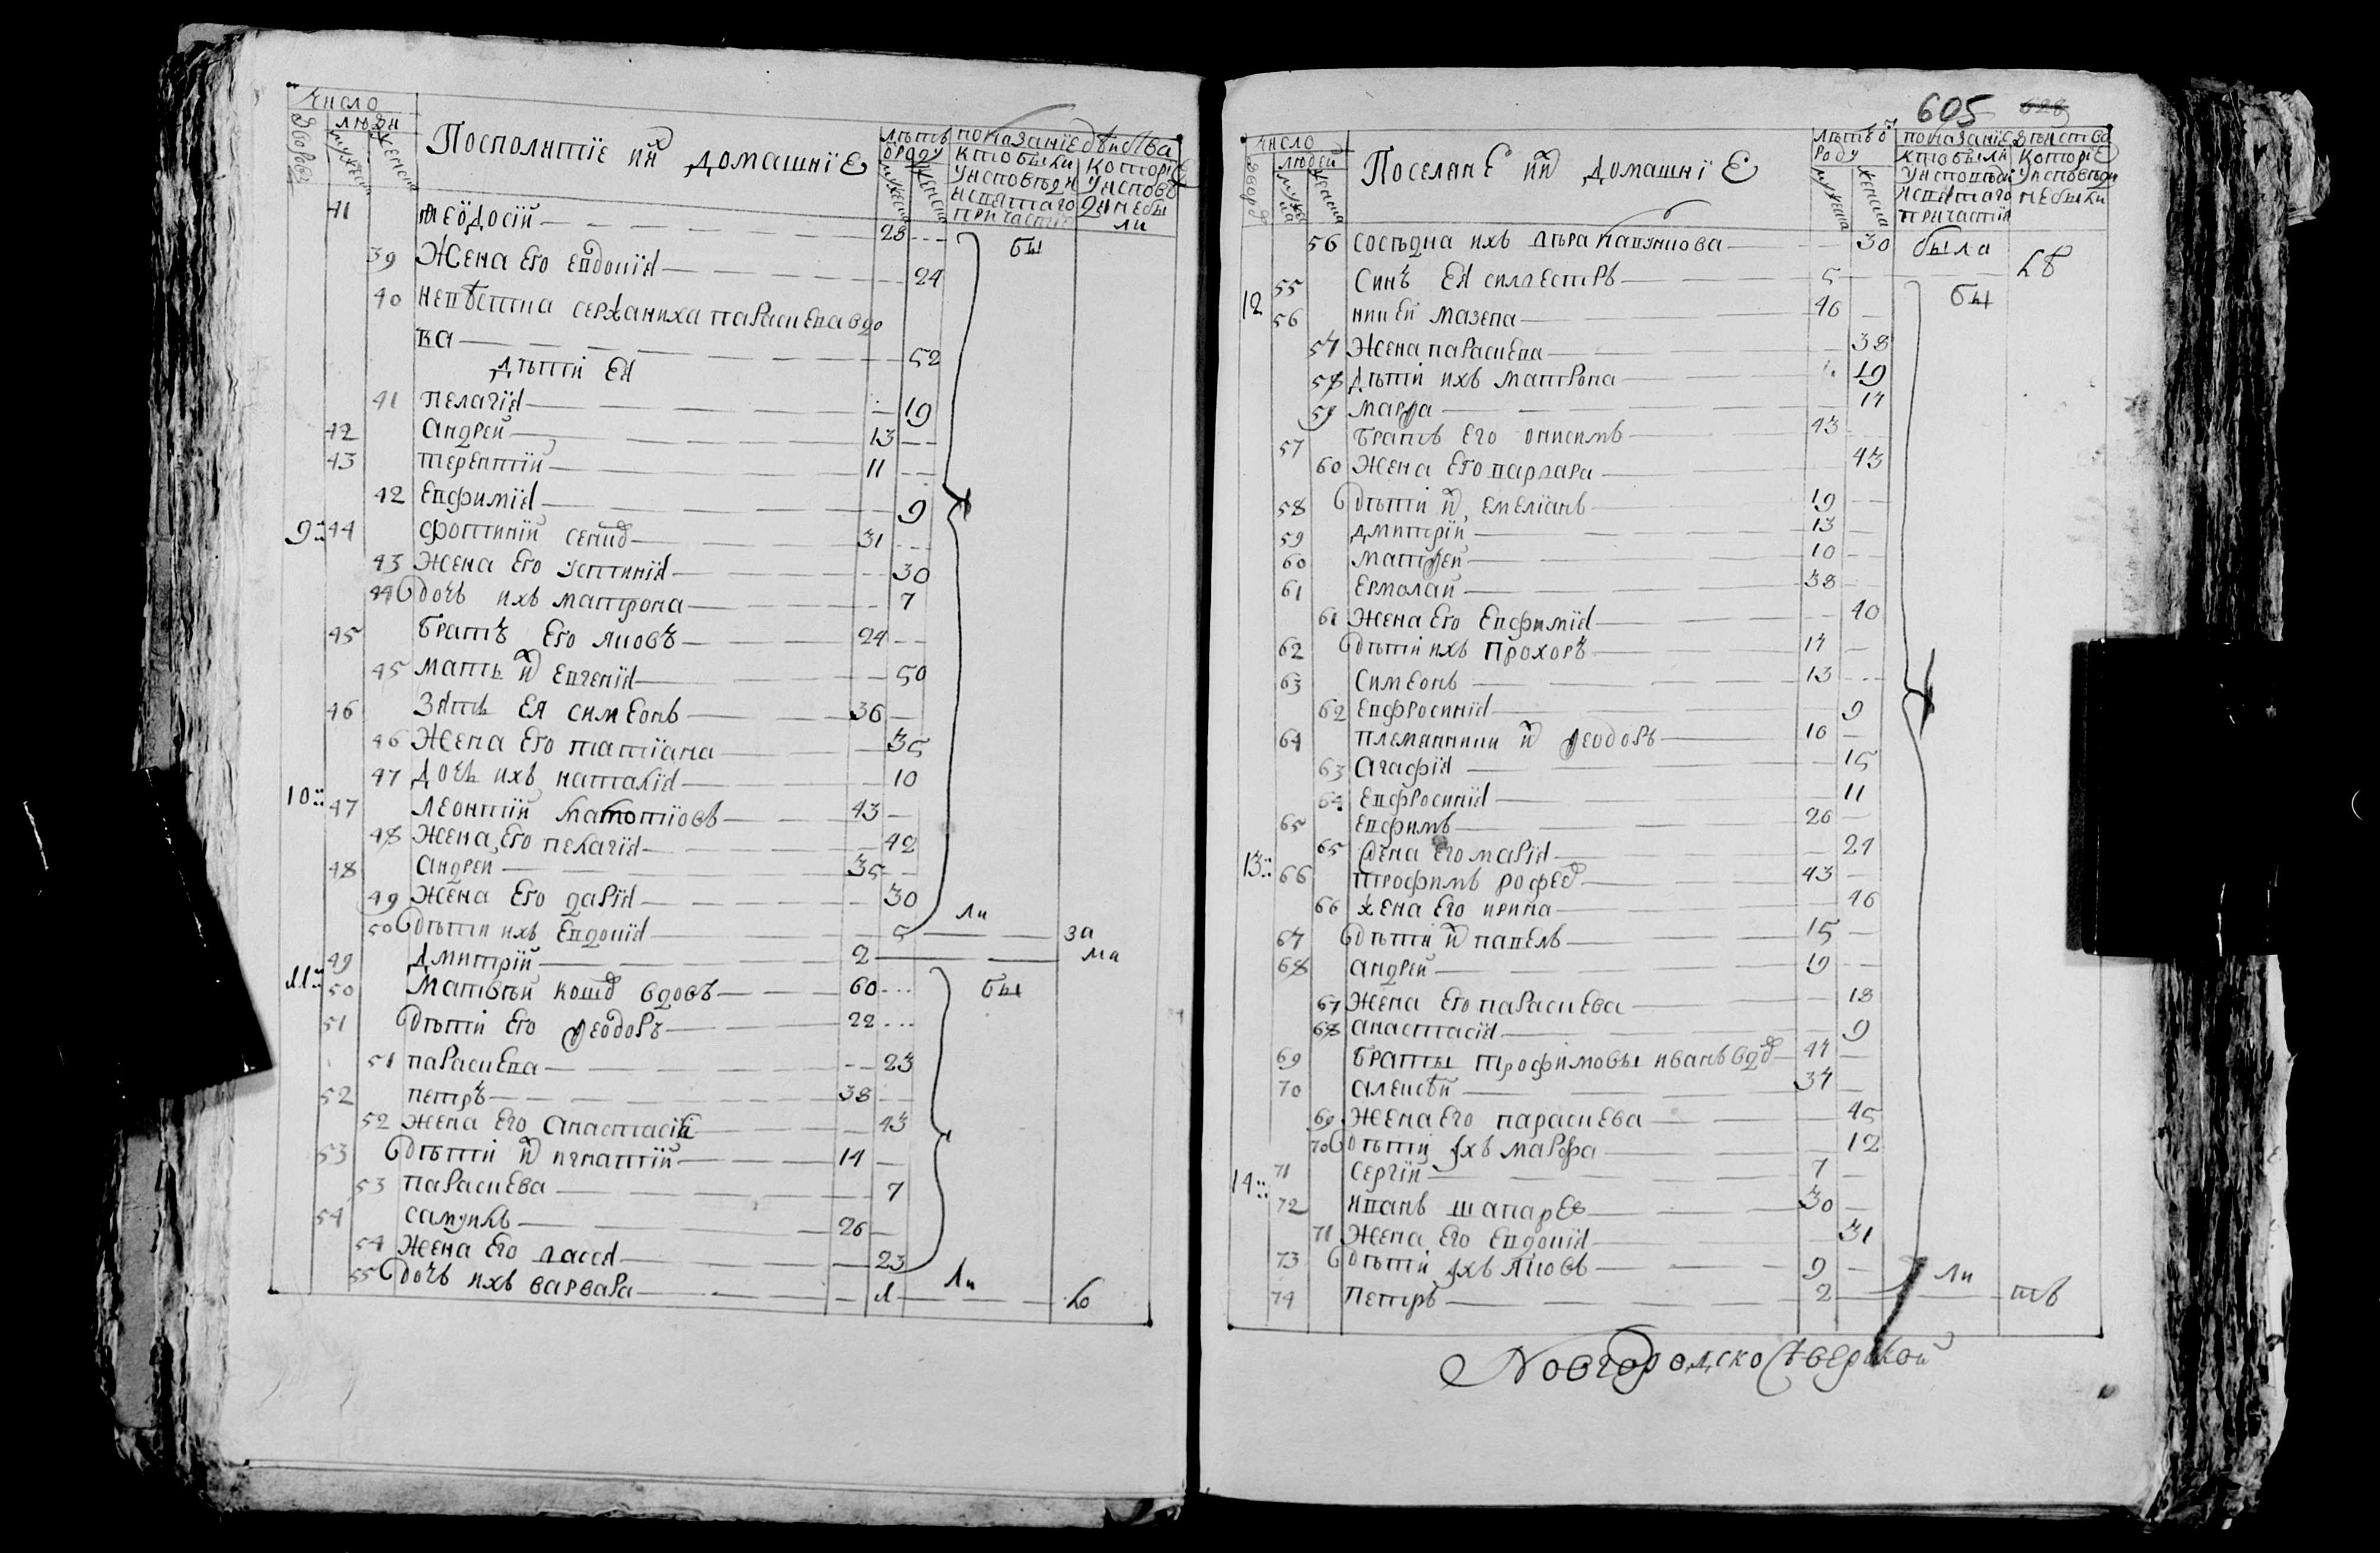 Число
Дворовъ
людей
мужеска
женска
Посполитїе и ихъ домашнїе
лѣтъ
ѿ роду
мужеска
женска
показанїе дѣйства
кто были
у исповѣди
и святаго
причастїя
которїе
у исповѣ
ди не бы
ли
41 ѳеодосїй — 28
бы
39 Жена его евдокїя — 24
40 невѣстка сержаниха параскева вдо
ва — 52
дѣти ея
41 пелагїя — 19
42 андрей — 13
43 терентїй — 11
42 евфимїя — 9
9 44 фотинїй — 31
43 жена его устинїя — 30
44 дочь ихъ матрона — 7
45 братъ его яковъ — 24
45 мать и евгенїя — 50
46 зять ея симеонъ — 36
46 жена его татїана — 35
47 дочь ихъ наталїя — 10
10 47 леонтїй — 43
48 жена его пелагїя — 42
48 андрей — 35
49 жена его дарїя — 30
ли
50 дѣти ихъ евдокїя — 5 — за
49 дмитрїй — 2 — ма
11 50 матвѣй вдовъ — 60
бы
51 дѣти его ѳеодоръ — 22
51 параскева — 23
52 петръ — 38
52 жена его анастасїя — 43
53 дѣти и игнатїй — 14
53 параскева — 7
54 самуилъ — 26
54 жена его васся — 23
ли
55 дочь ихъ варвара — 1 — ло
605 628
число
дворовъ
людей
мужеска
женска
Поселяне и ихъ домашнїе
лѣтъ ѿ
роду
мужеска
женска
показанїе дѣйства
кто были
у исповѣди
и святаго
причастїя
которїе
у исповѣди
не были
56 сосѣдка ихъ вѣра — 30 была
55 синъ ея силвестръ — 5 — лъ
бы
12 56 мазепа — 46
57 жена параскева — 38
58 дѣти ихъ матрона — 19
59 марѳа — 14
57 братъ его онисимъ — 43
60 жена его варвара — 43
58 дѣти и емелїанъ — 19
59 дмитрїй — 13
60 матѳей — 10
61 ермолай — 38
61 жена его евфимїя — 40
62 дѣти ихъ прохоръ — 14
63 симеонъ — 13
62 евфросинїя — 9
64 племянники и ѳеодоръ — 16
63 агафїя — 15
64 евфросинїя — 11
65 евфимъ — 26
65 жена его марїя — 24
13 66 трофимъ — 43
66 жена его ирина — 46
67 дѣти и павелъ — 15
68 андрей — 19
67 жена его параскева — 18
68 анастасїя — 9
69 браты трофимовы иванъ вдо — 44
70 алексѣй — 34
69 жена его параскева — 45
70 дѣти ихъ марфа — 12
71 сергїй — 7
14 72 иванъ шапаре — 30
71 жена его евдокїя — 31
73 дѣти ихъ яковъ — 9
ли
74 петръ — 2 — тъ
Новгородскосѣверской